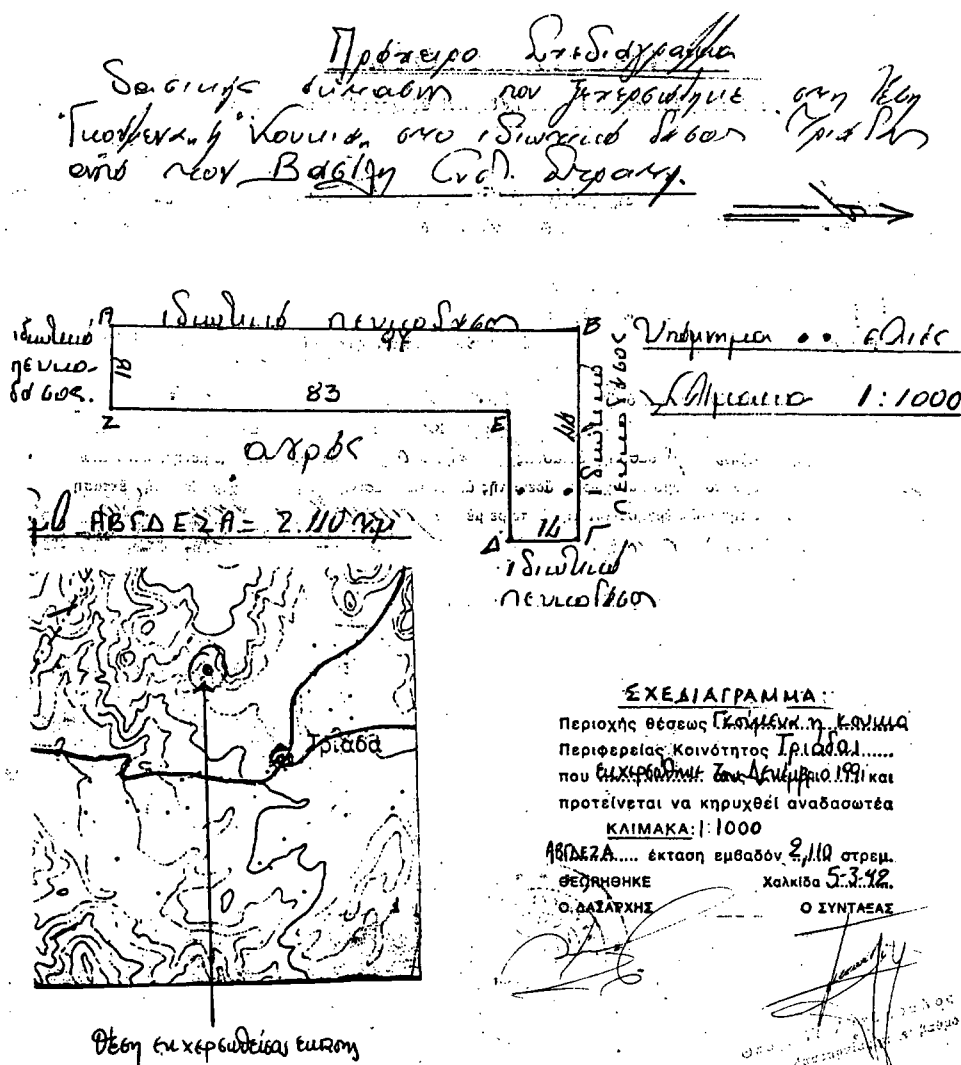 Πρόχειρο Σχεδιάγραμμα
δασικής έκτασης που ξεχερσώθηκε στη θέση
στο ιδιωτικό δάσος Τριάδα
από τον Βασίλη
Α ιδιωτικό πευκοδάσος Β
97
ιδιωτικό
πευκο-
δάσος.
Ζ 83 Ε
αγρός
ιδιωτικό
πευκοδάσος
Υπόμνημα •• ελιές
Κλίμακα 1:1000
ΑΒΓΔΕΖΑ = 2.110 τμ
Δ 14 Γ
ιδιωτικό
πευκοδάσος
Τριάδα
Θέση εκχερσωθείσας έκτασης
ΣΧΕΔΙΑΓΡΑΜΜΑ:
Περιοχής θέσεως Γκοψμενα η κουκια
Περιφερείας Κοινότητος Τριάδας
που εκχερσώθηκε τον Δεκέμβριο 1991 και
προτείνεται να κηρυχθεί αναδασωτέα
ΚΛΙΜΑΚΑ: 1:1000
ΑΒΓΔΕΖΑ..... έκταση εμβαδόν 2,110 στρεμ.
ΘΕΩΡΗΘΗΚΕ Χαλκίδα 5-3-92.
Ο ΔΑΣΑΡΧΗΣ Ο ΣΥΝΤΑΞΑΣ